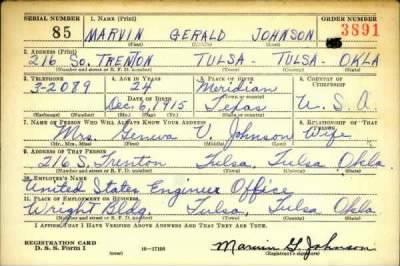 SERIAL NUMBER 1. NAME (Print) ORDER NUMBER
85 MARVIN GERALD JOHNSON 3891
(First) (Middle) (Last)
2. ADDRESS (Print)
216 SO. TRENTON TULSA - TULSA - OKLA
(Number and street or R. F. D. number) (Town) (County) (State)
3. TELEPHONE 4. AGE IN YEARS 5. PLACE OF BIRTH 6. COUNTRY OF CITIZENSHIP
3-2089 24 Meridian
DATE OF BIRTH (Town or county)
Dec. 6, 1915 Texas U. S. A.
(Exchange) (No.) (Mo.) (Day) (Yr.) (State or country)
7. NAME OF PERSON WHO WILL ALWAYS KNOW YOUR ADDRESS 8. RELATIONSHIP OF THAT PERSON
Mrs. Geneva V. Johnson Wife
(Mr., Mrs., Miss) (First) (Middle) (Last)
9. ADDRESS OF THAT PERSON
216 S. Trenton Tulsa, Tulsa Okla.
(Number and street or R. F. D. number) (Town) (County) (State)
10. EMPLOYER'S NAME
United States Engineer Office
11. PLACE OF EMPLOYMENT OR BUSINESS
Wright Bldg. Tulsa, Tulsa Okla.
(Number and street or R. F. D. number) (Town) (County) (State)
I AFFIRM THAT I HAVE VERIFIED ABOVE ANSWERS AND THAT THEY ARE TRUE.
REGISTRATION CARD
D. S. S. Form 1 16-17105 Marvin G. Johnson
(Registrant's signature)